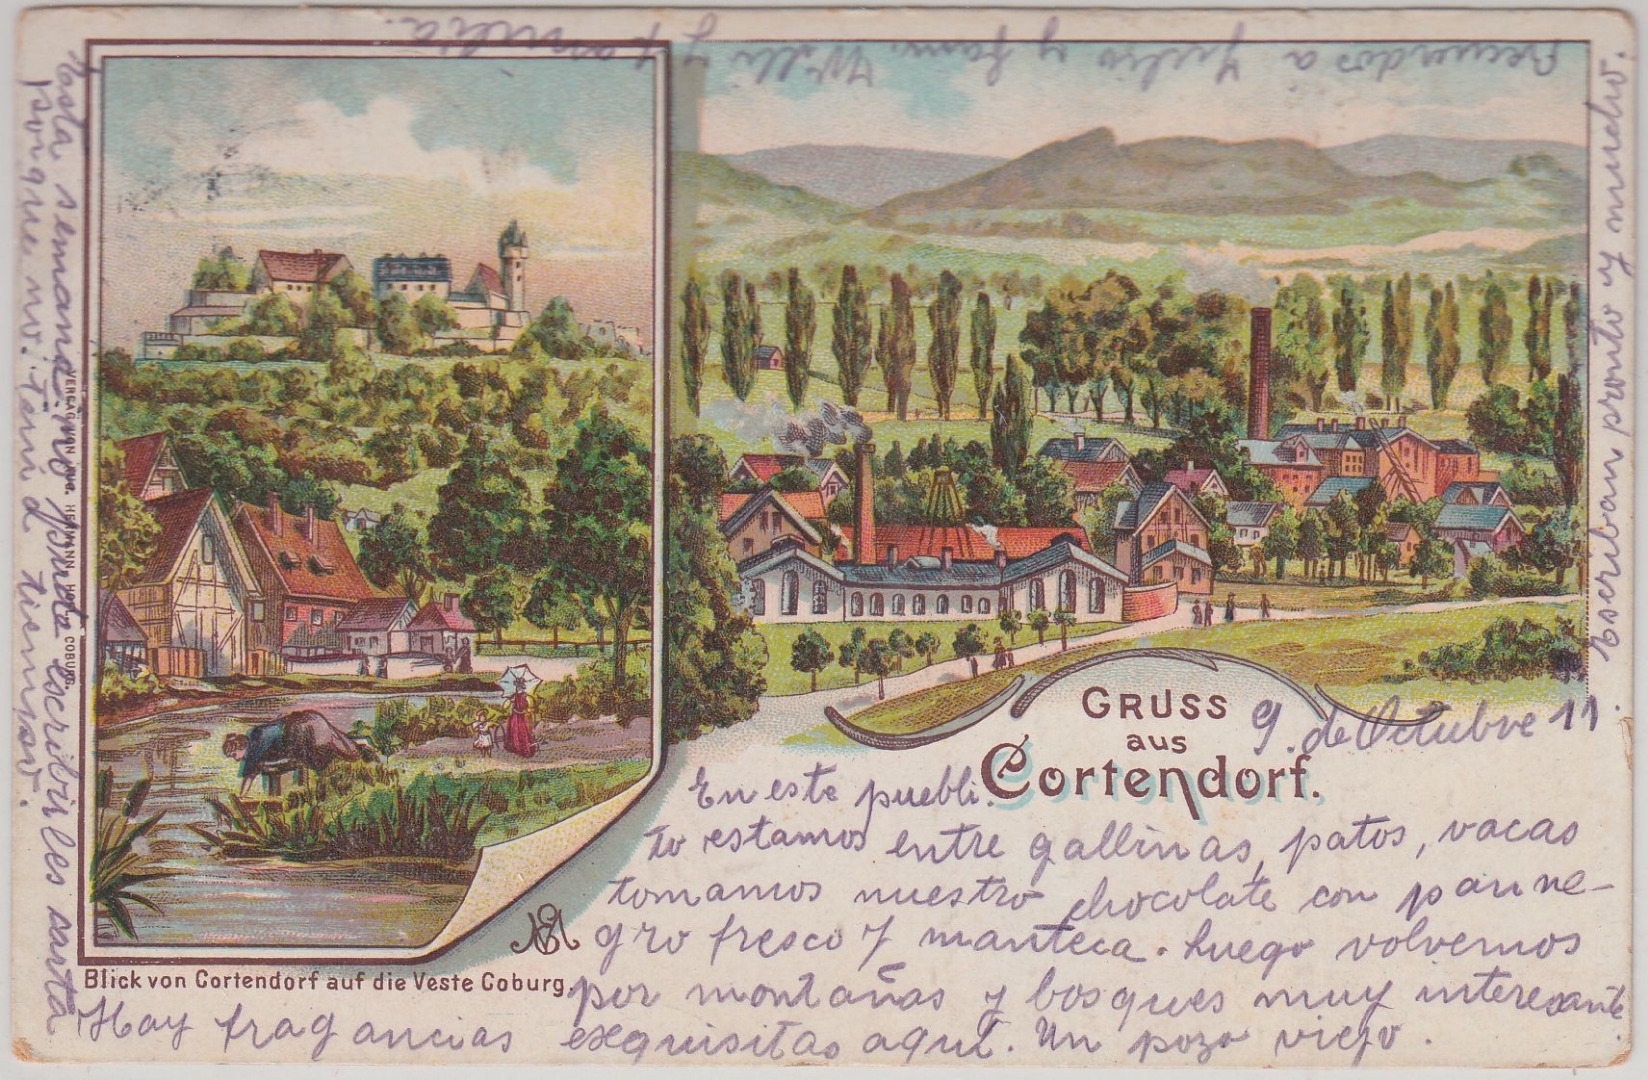 Recuerdos a Julio y fam. Willi y familia.
GRUSS
aus
Cortendorf.
9. de Octubre 11.
En este puebli.
to estamos entre gallinas, patos, vacas
tomamos nuestro chocolate con pan ne-
gro fresco y manteca. Luego volvemos
por montañas y bosques muy interesante.
Hay fragancias exquisitas aquí. Un pozo viejo.
Esta semana no pude escribirles carta
porque no tani d tiempo.
Escriban pronto y mucho.
Blick von Cortendorf auf die Veste Coburg.
VERLAG VON HERMANN COBURG.